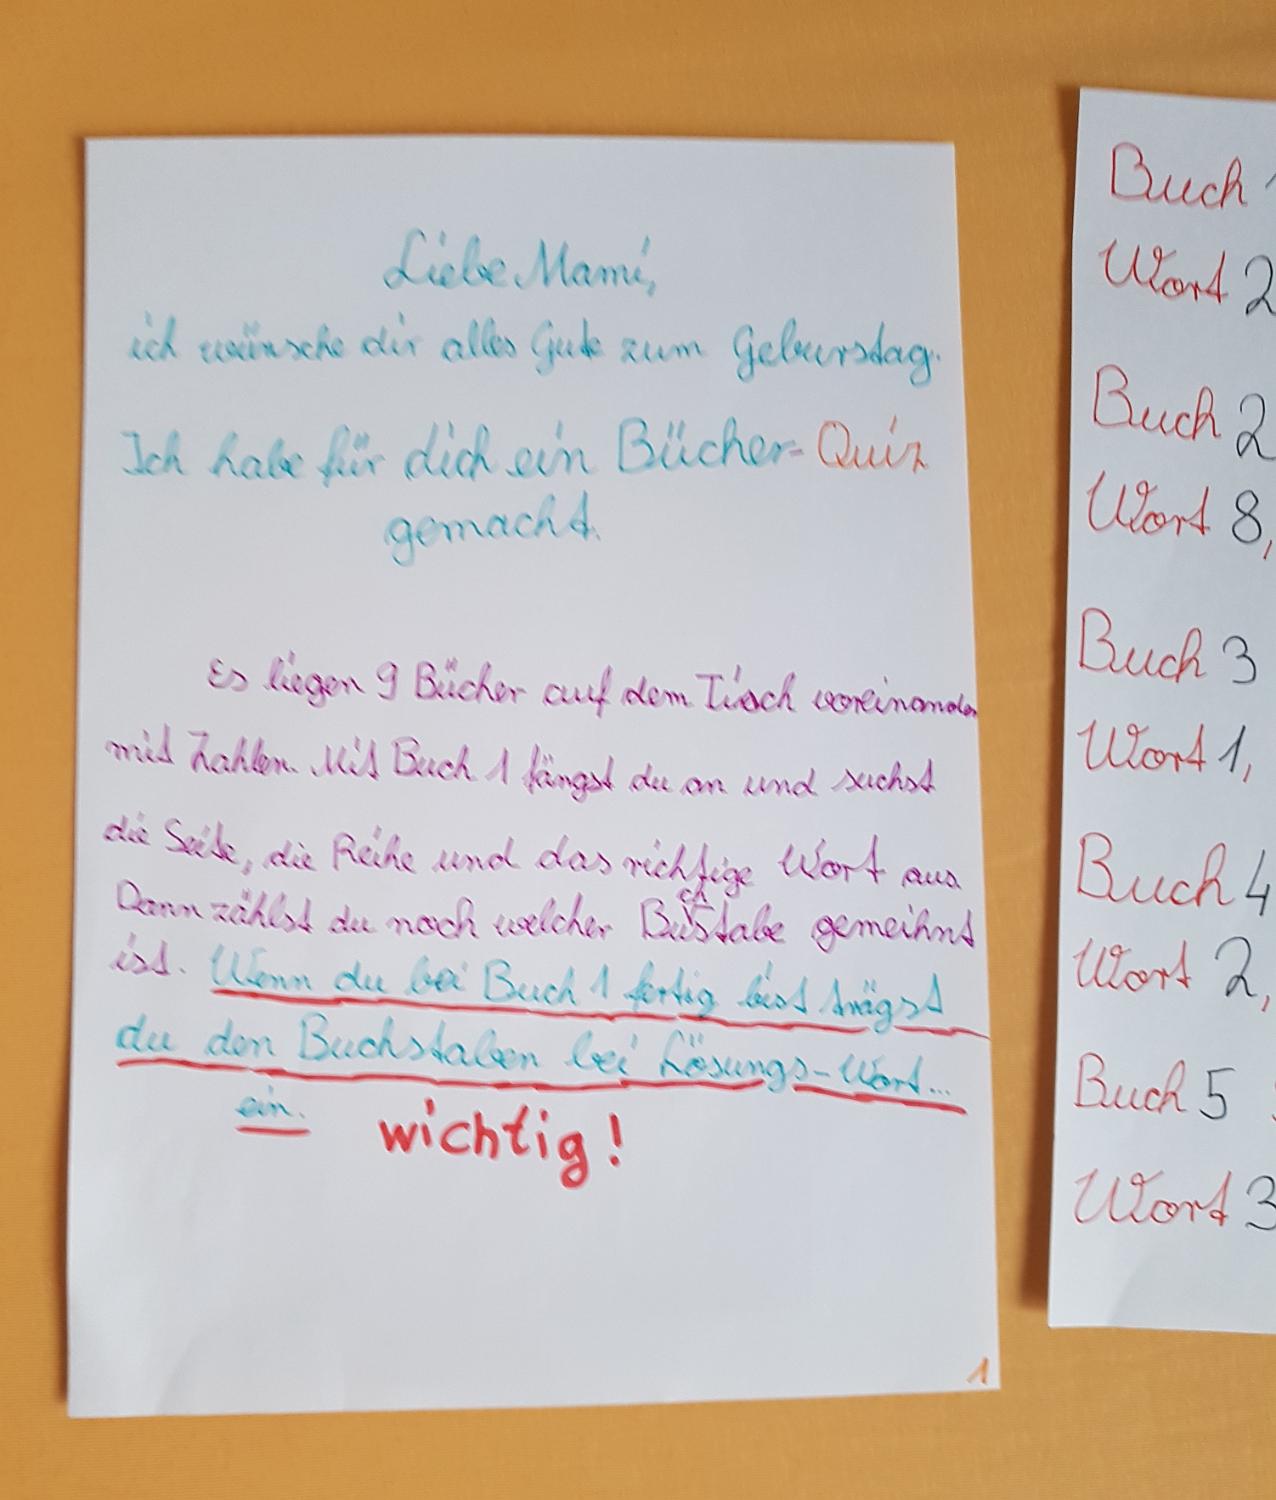 Liebe Mami,
ich wünsche dir alles Gute zum Geburstag.
Ich habe für dich ein Bücher-Quiz
gemacht.
Es liegen 9 Bücher auf dem Tisch voreinander
mit Zahlen. Mit Buch 1 fängst du an und suchst
die Seite, die Reihe und das richtige Wort aus.
Dann zählst du noch welcher Buchstabe gemeihnt
ist. Wenn du bei Buch 1 fertig bist trägst
du den Buchstaben bei Lösungs-Wort...
ein. wichtig!
1
Buch 1
Wort 2
Buch 2
Wort 8,
Buch 3
Wort 1,
Buch 4
Wort 2,
Buch 5
Wort 3